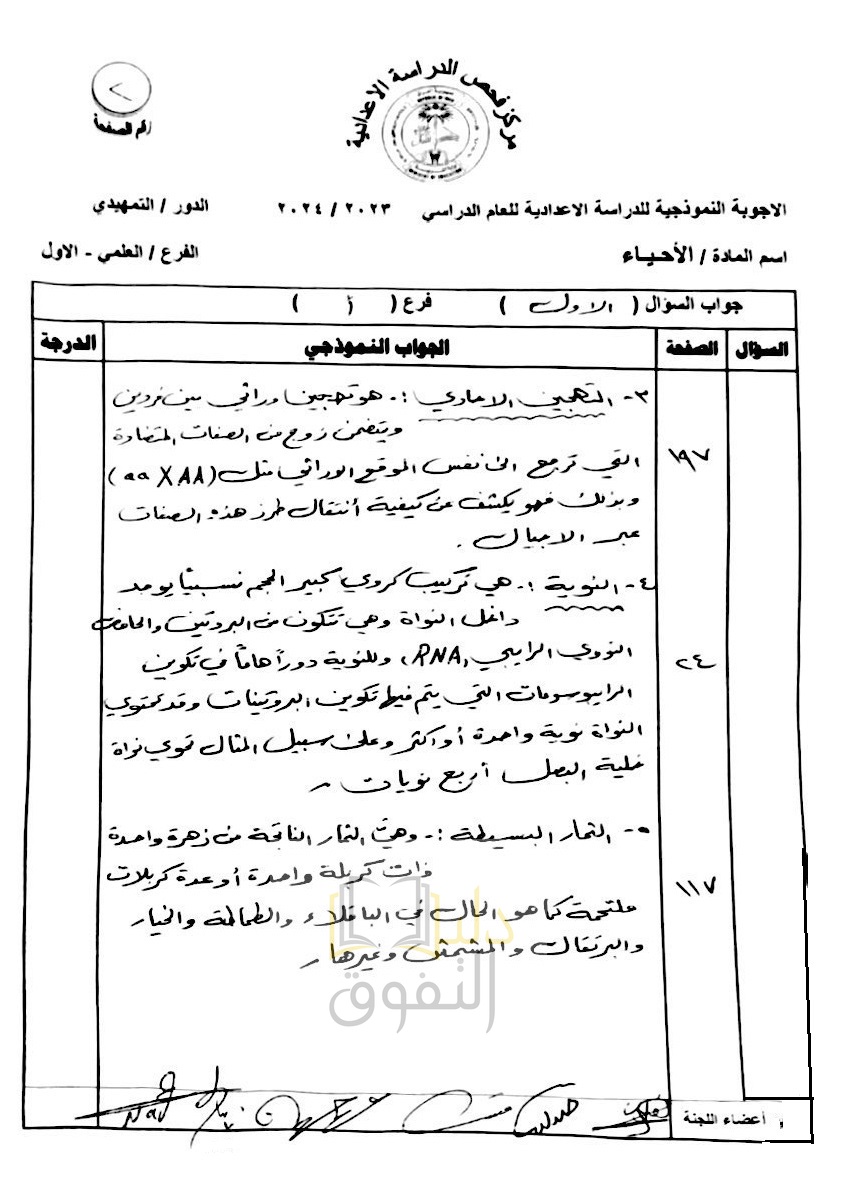 مركز فحص الدراسة الاعدادية
٢
رقم الصفحة
الاجوبة النموذجية للدراسة الاعدادية للعام الدراسي ٢٠٢٣ / ٢٠٢٤ الدور / التمهيدي
اسم المادة / الأحياء الفرع / العلمي - الاول
جواب السؤال ( الاول ) فرع ( أ )
السؤال الصفحة الجواب النموذجي الدرجة
٣- التهجين الاحادي :- هو تهجين وراثي بين فردين
ويتضمن زوج من الصفات المتضادة
١٩٧
التي ترجع الى نفس الموقع الوراثي مثل (aa X AA)
وبذلك فهو يكشف عن كيفية أنتقال طرز هذه الصفات
عبر الاجيال .
٤- النوية :- هي تركيب كروي كبير الحجم نسبيًا يوجد
داخل النواة وهي تتكون من البروتين والحامض
٢٤
النووي الرايبي RNA، وللنوية دوراً هاماً في تكوين
الرايبوسومات التي يتم فيها تكوين البروتينات وقد تحتوي
النواة نوية واحدة أو اكثر وعلى سبيل المثال تحوي نواة
خلية البصل أربع نويات
٥- الثمار البسيطة :- وهي الثمار الناتجة من زهرة واحدة
ذات كربلة واحدة أو عدة كربلات
١١٧
ملتحمة كما هو الحال في الباقلاء والطماطة والخيار
والبرتقال والمشمش وغيرها
دليل
التفوق
أعضاء اللجنة